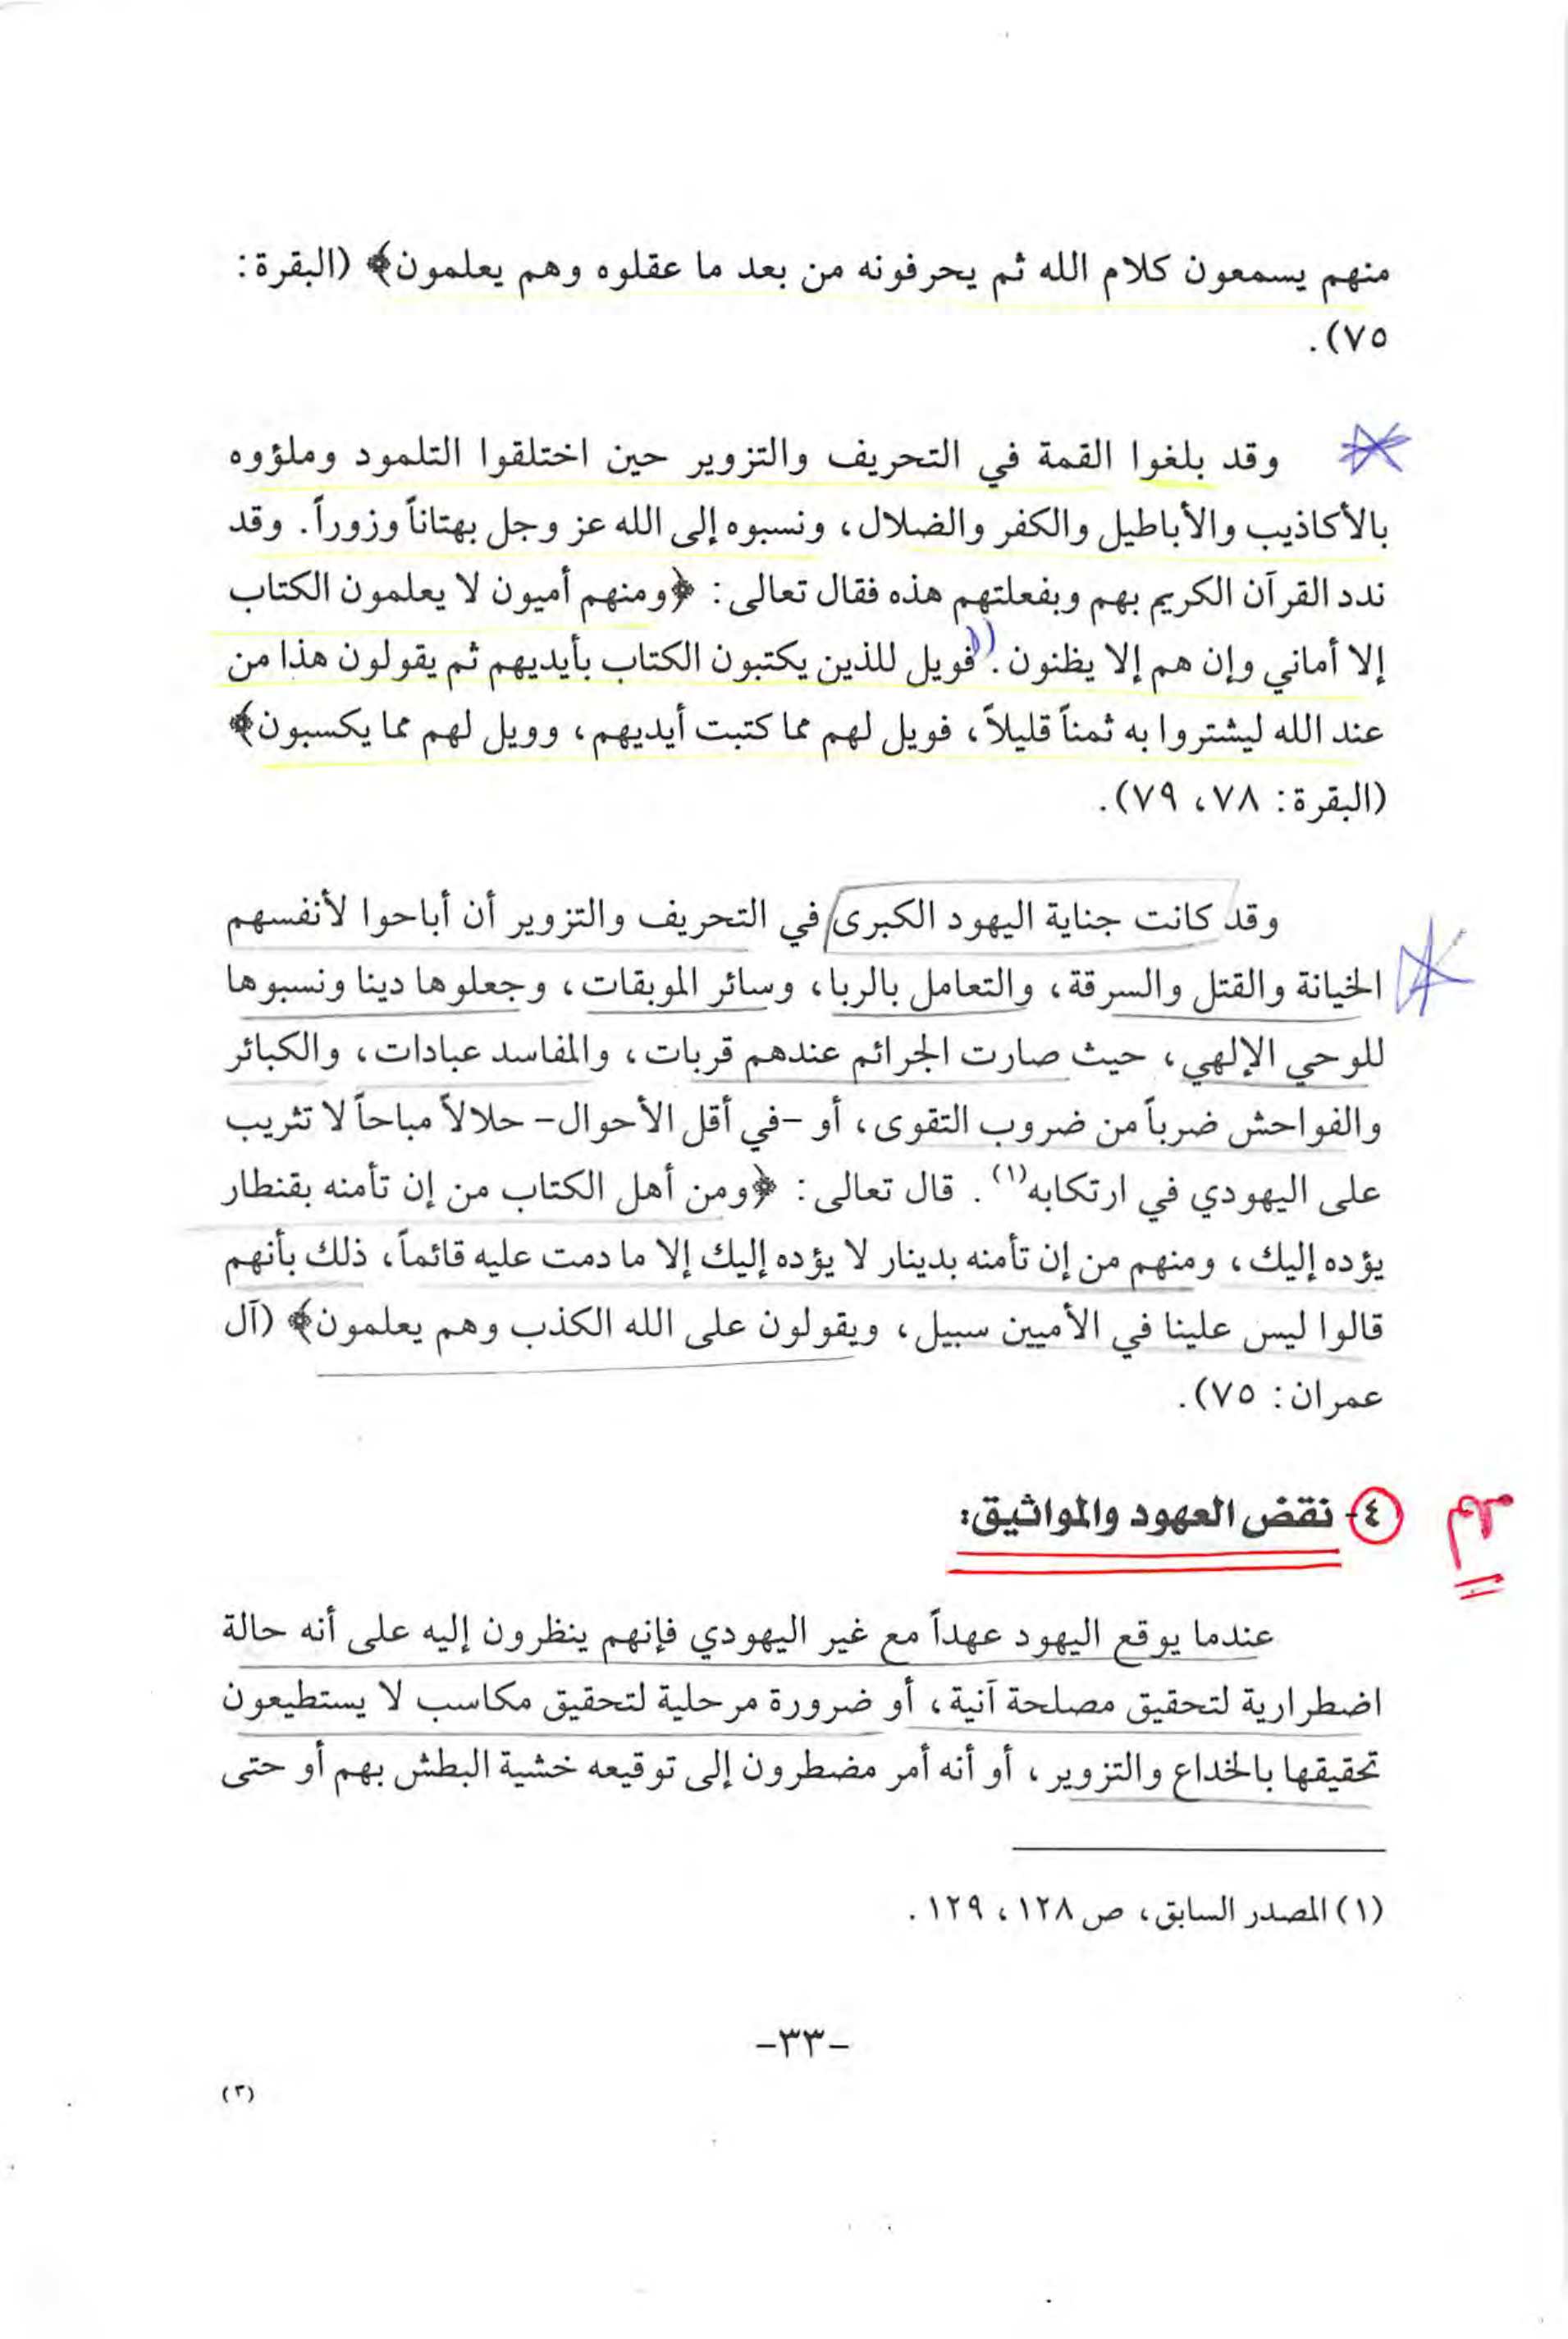 منهم يسمعون كلام الله ثم يحرفونه من بعد ما عقلوه وهم يعلمون﴾ (البقرة:
٧٥).
وقد بلغوا القمة في التحريف والتزوير حين اختلقوا التلمود وملؤوه
بالأكاذيب والأباطيل والكفر والضلال، ونسبوه إلى الله عز وجل بهتاناً وزوراً. وقد
ندد القرآن الكريم بهم وبفعلتهم هذه فقال تعالى: ﴿ومنهم أميون لا يعلمون الكتاب
إلا أماني وإن هم إلا يظنون. فويل للذين يكتبون الكتاب بأيديهم ثم يقولون هذا من
عند الله ليشتروا به ثمناً قليلاً، فويل لهم مما كتبت أيديهم، وويل لهم مما يكسبون﴾
(البقرة: ٧٨، ٧٩).
وقد كانت جناية اليهود الكبرى في التحريف والتزوير أن أباحوا لأنفسهم
الخيانة والقتل والسرقة، والتعامل بالربا، وسائر الموبقات، وجعلوها دينا ونسبوها
للوحي الإلهي، حيث صارت الجرائم عندهم قربات، والمفاسد عبادات، والكبائر
والفواحش ضرباً من ضروب التقوى، أو -في أقل الأحوال- حلالاً مباحاً لا تثريب
على اليهودي في ارتكابه(١). قال تعالى: ﴿ومن أهل الكتاب من إن تأمنه بقنطار
يؤده إليك، ومنهم من إن تأمنه بدينار لا يؤده إليك إلا ما دمت عليه قائماً، ذلك بأنهم
قالوا ليس علينا في الأميين سبيل، ويقولون على الله الكذب وهم يعلمون﴾ (آل
عمران: ٧٥).
٤- نقض العهود والمواثيق:
عندما يوقع اليهود عهداً مع غير اليهودي فإنهم ينظرون إليه على أنه حالة
اضطرارية لتحقيق مصلحة آنية، أو ضرورة مرحلية لتحقيق مكاسب لا يستطيعون
تحقيقها بالخداع والتزوير، أو أنه أمر مضطرون إلى توقيعه خشية البطش بهم أو حتى
(١) المصدر السابق، ص ١٢٨، ١٢٩.
-٣٣-
(٣)